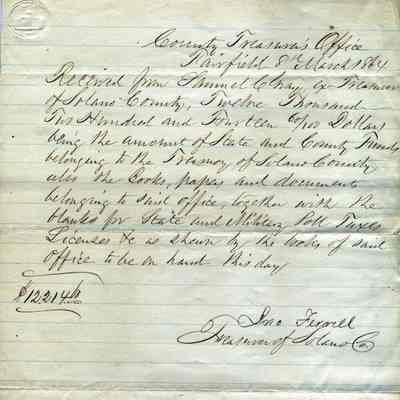 County Treasurer's Office
Fairfield 8th March 1864
Received from Samuel C Gray, ex Treasurer
of Solano County, Twelve Thousand
Two Hundred and Fourteen /100 Dollars
being the amount of State and County Funds
belonging to the Treasury of Solano County
also the books, papers and documents
belonging to said office, together with the
blanks for State and Military Poll Taxes
Licenses &c as shown by the books of said
Office to be on hand this day
$12214
Treasurer of Solano Co